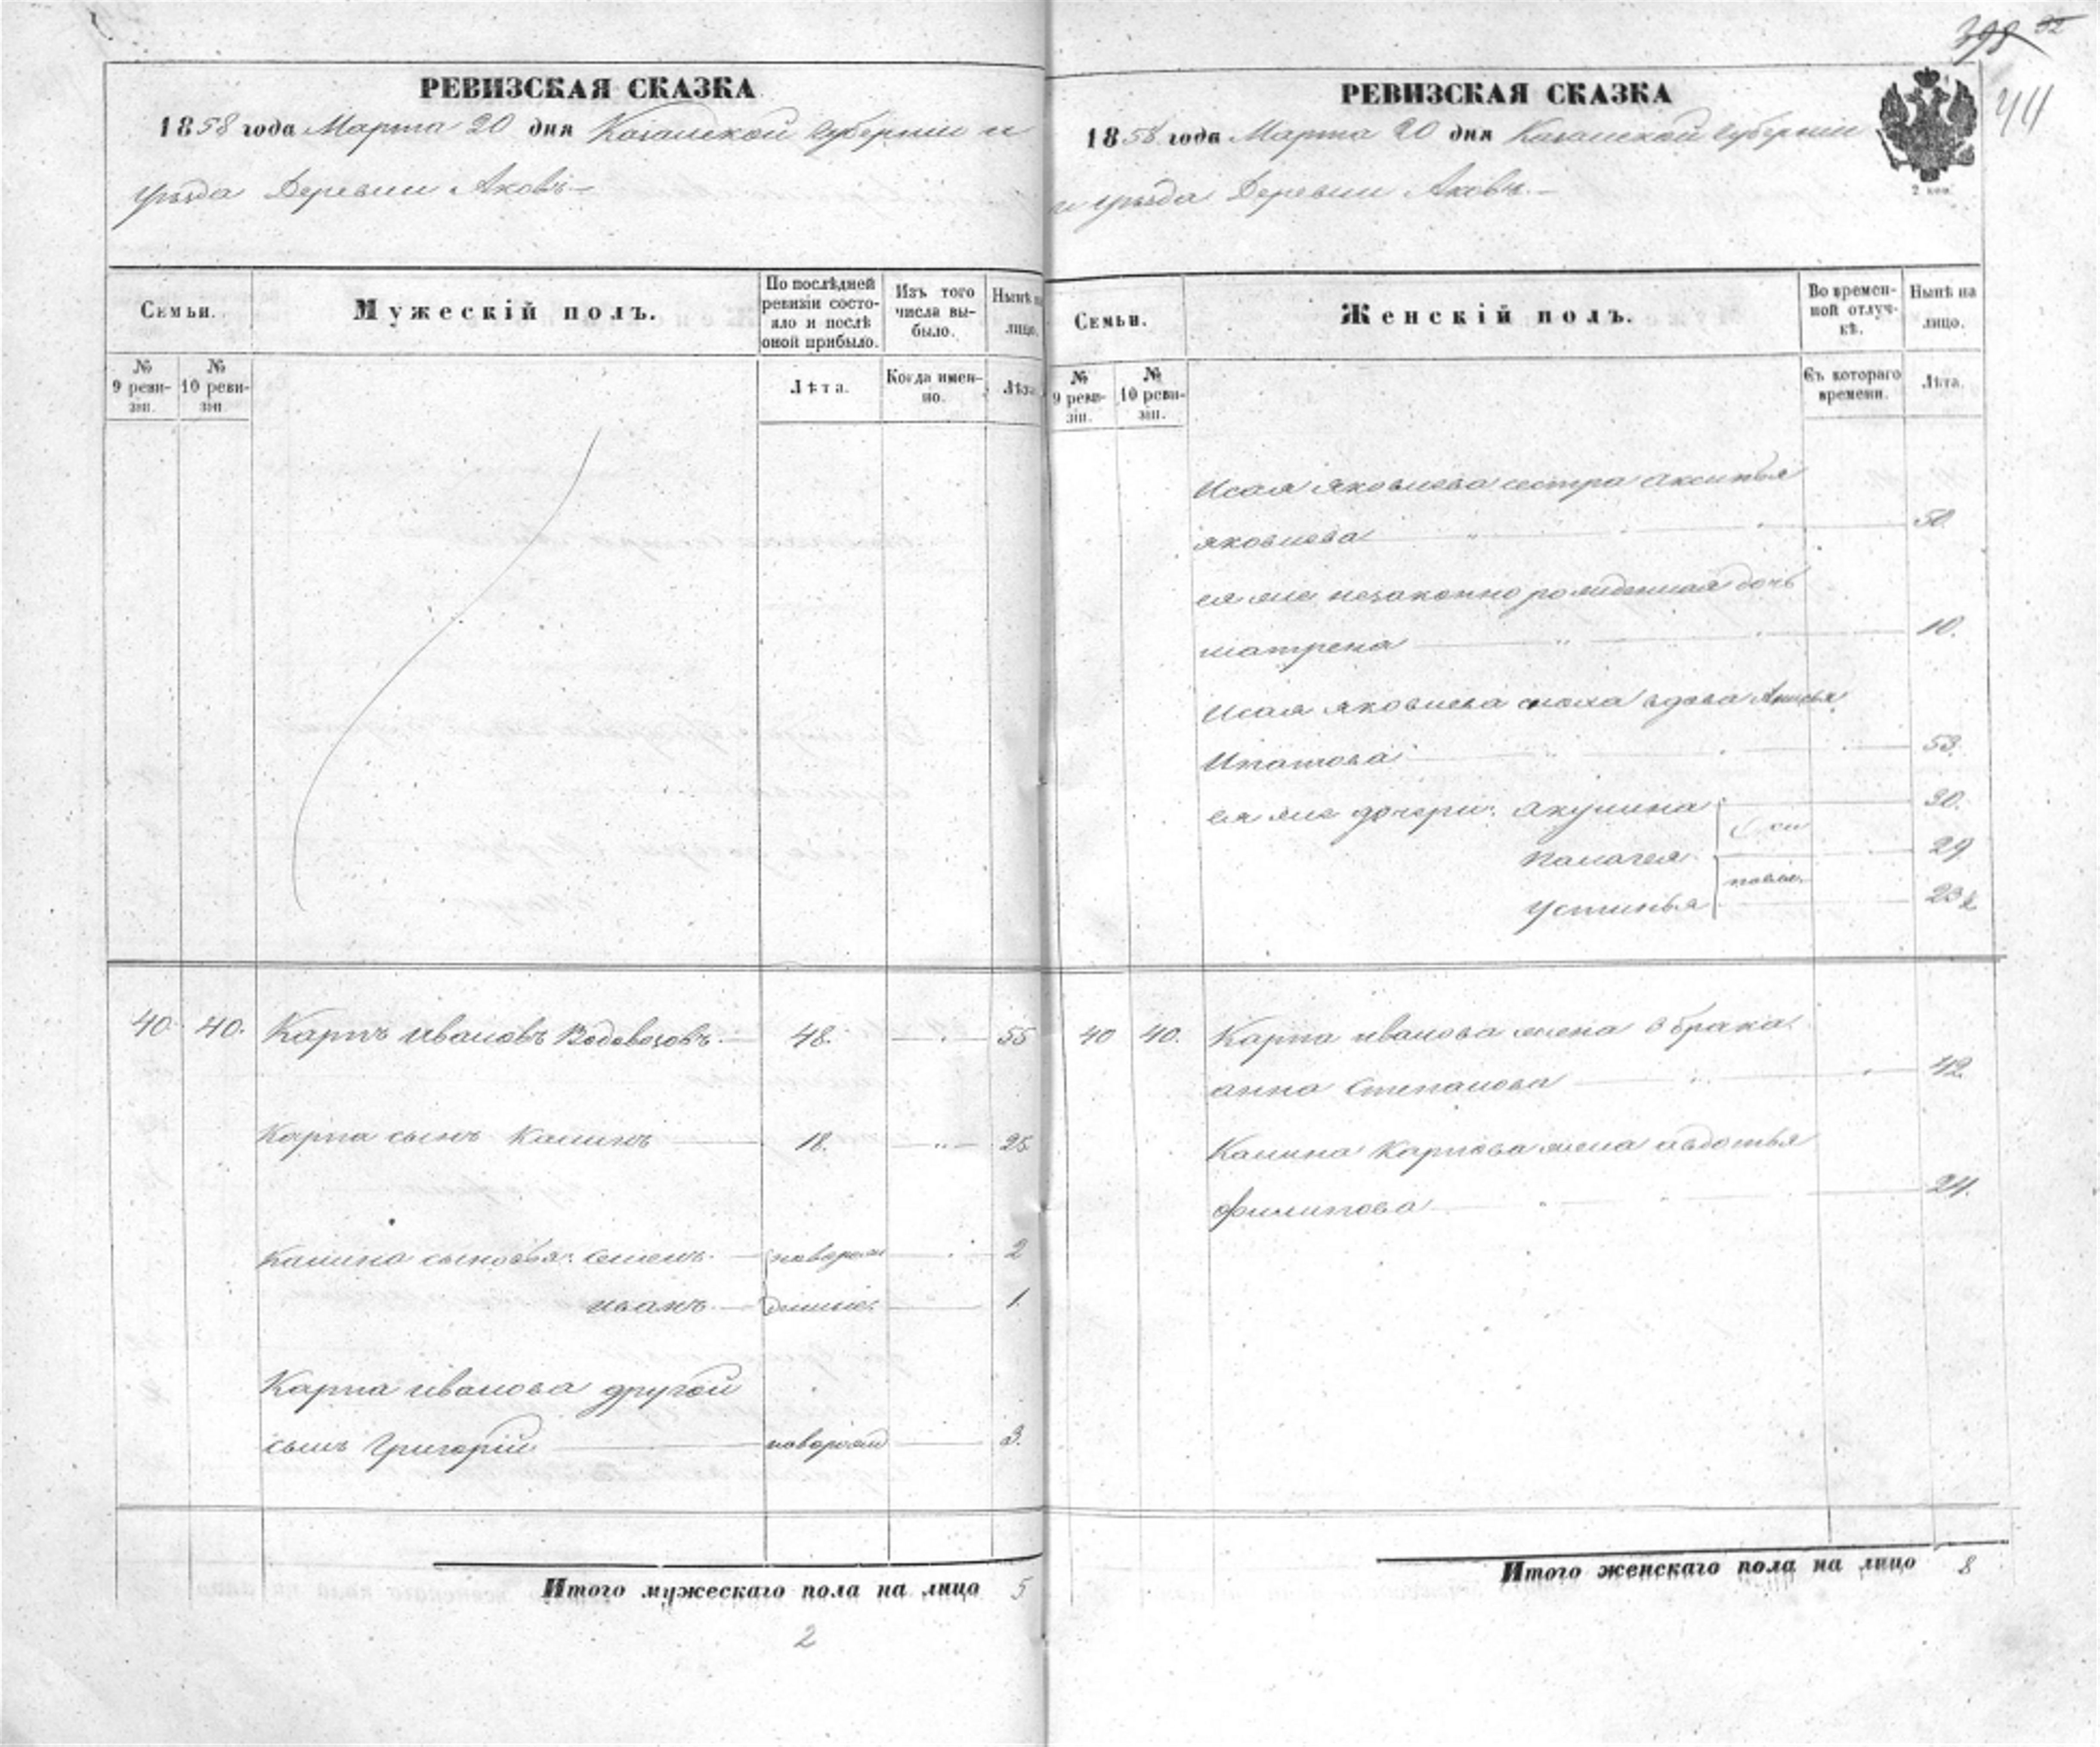 398 92
44
РЕВИЗСКАЯ СКАЗКА
1858 года Марта 20 дня Казанской Губерніи и
уѣзда Деревни Аковъ
Семьи.
Мужескій полъ.
По послѣдней ревизіи состояло и послѣ оной прибыло.
Изъ того числа выбыло.
Нынѣ на лицо.
№ 9 ревизіи.
№ 10 ревизіи
Лѣта.
Когда именно.
Лѣта
40. 40. Карпъ Ивановъ Водовозовъ 48. 55
Карпа сынъ Калинъ 18. 25
Калина сыновья: Семенъ новорож 2
иванъ денные. 1.
Карпа иванова другой
сынъ Григорій новорожд 3.
Итого мужескаго пола на лицо 5
2
РЕВИЗСКАЯ СКАЗКА
1858 года Марта 20 дня Казанской Губерніи
и уѣзда Деревни Аковъ.
2 коп.
Семьи.
Женскій полъ.
Во временной отлучкѣ.
Нынѣ на лицо.
№ 9 ревизіи.
№ 10 ревизіи.
Съ котораго времени.
Лѣта.
Исая яковлева сестра аксинья
яковлева 50.
ея же незаконно рожденная дочь
матрена 10.
Исая яковлева сноха вдова Анисья
Ипатова 53.
ея же дочери: акулина 30.
палагея 29
устинья 23
40 40. Карпа иванова жена 3 брака
анна Степанова 42.
Калина Карпова жена авдотья
филипова 24.
Итого женскаго пола на лицо 8